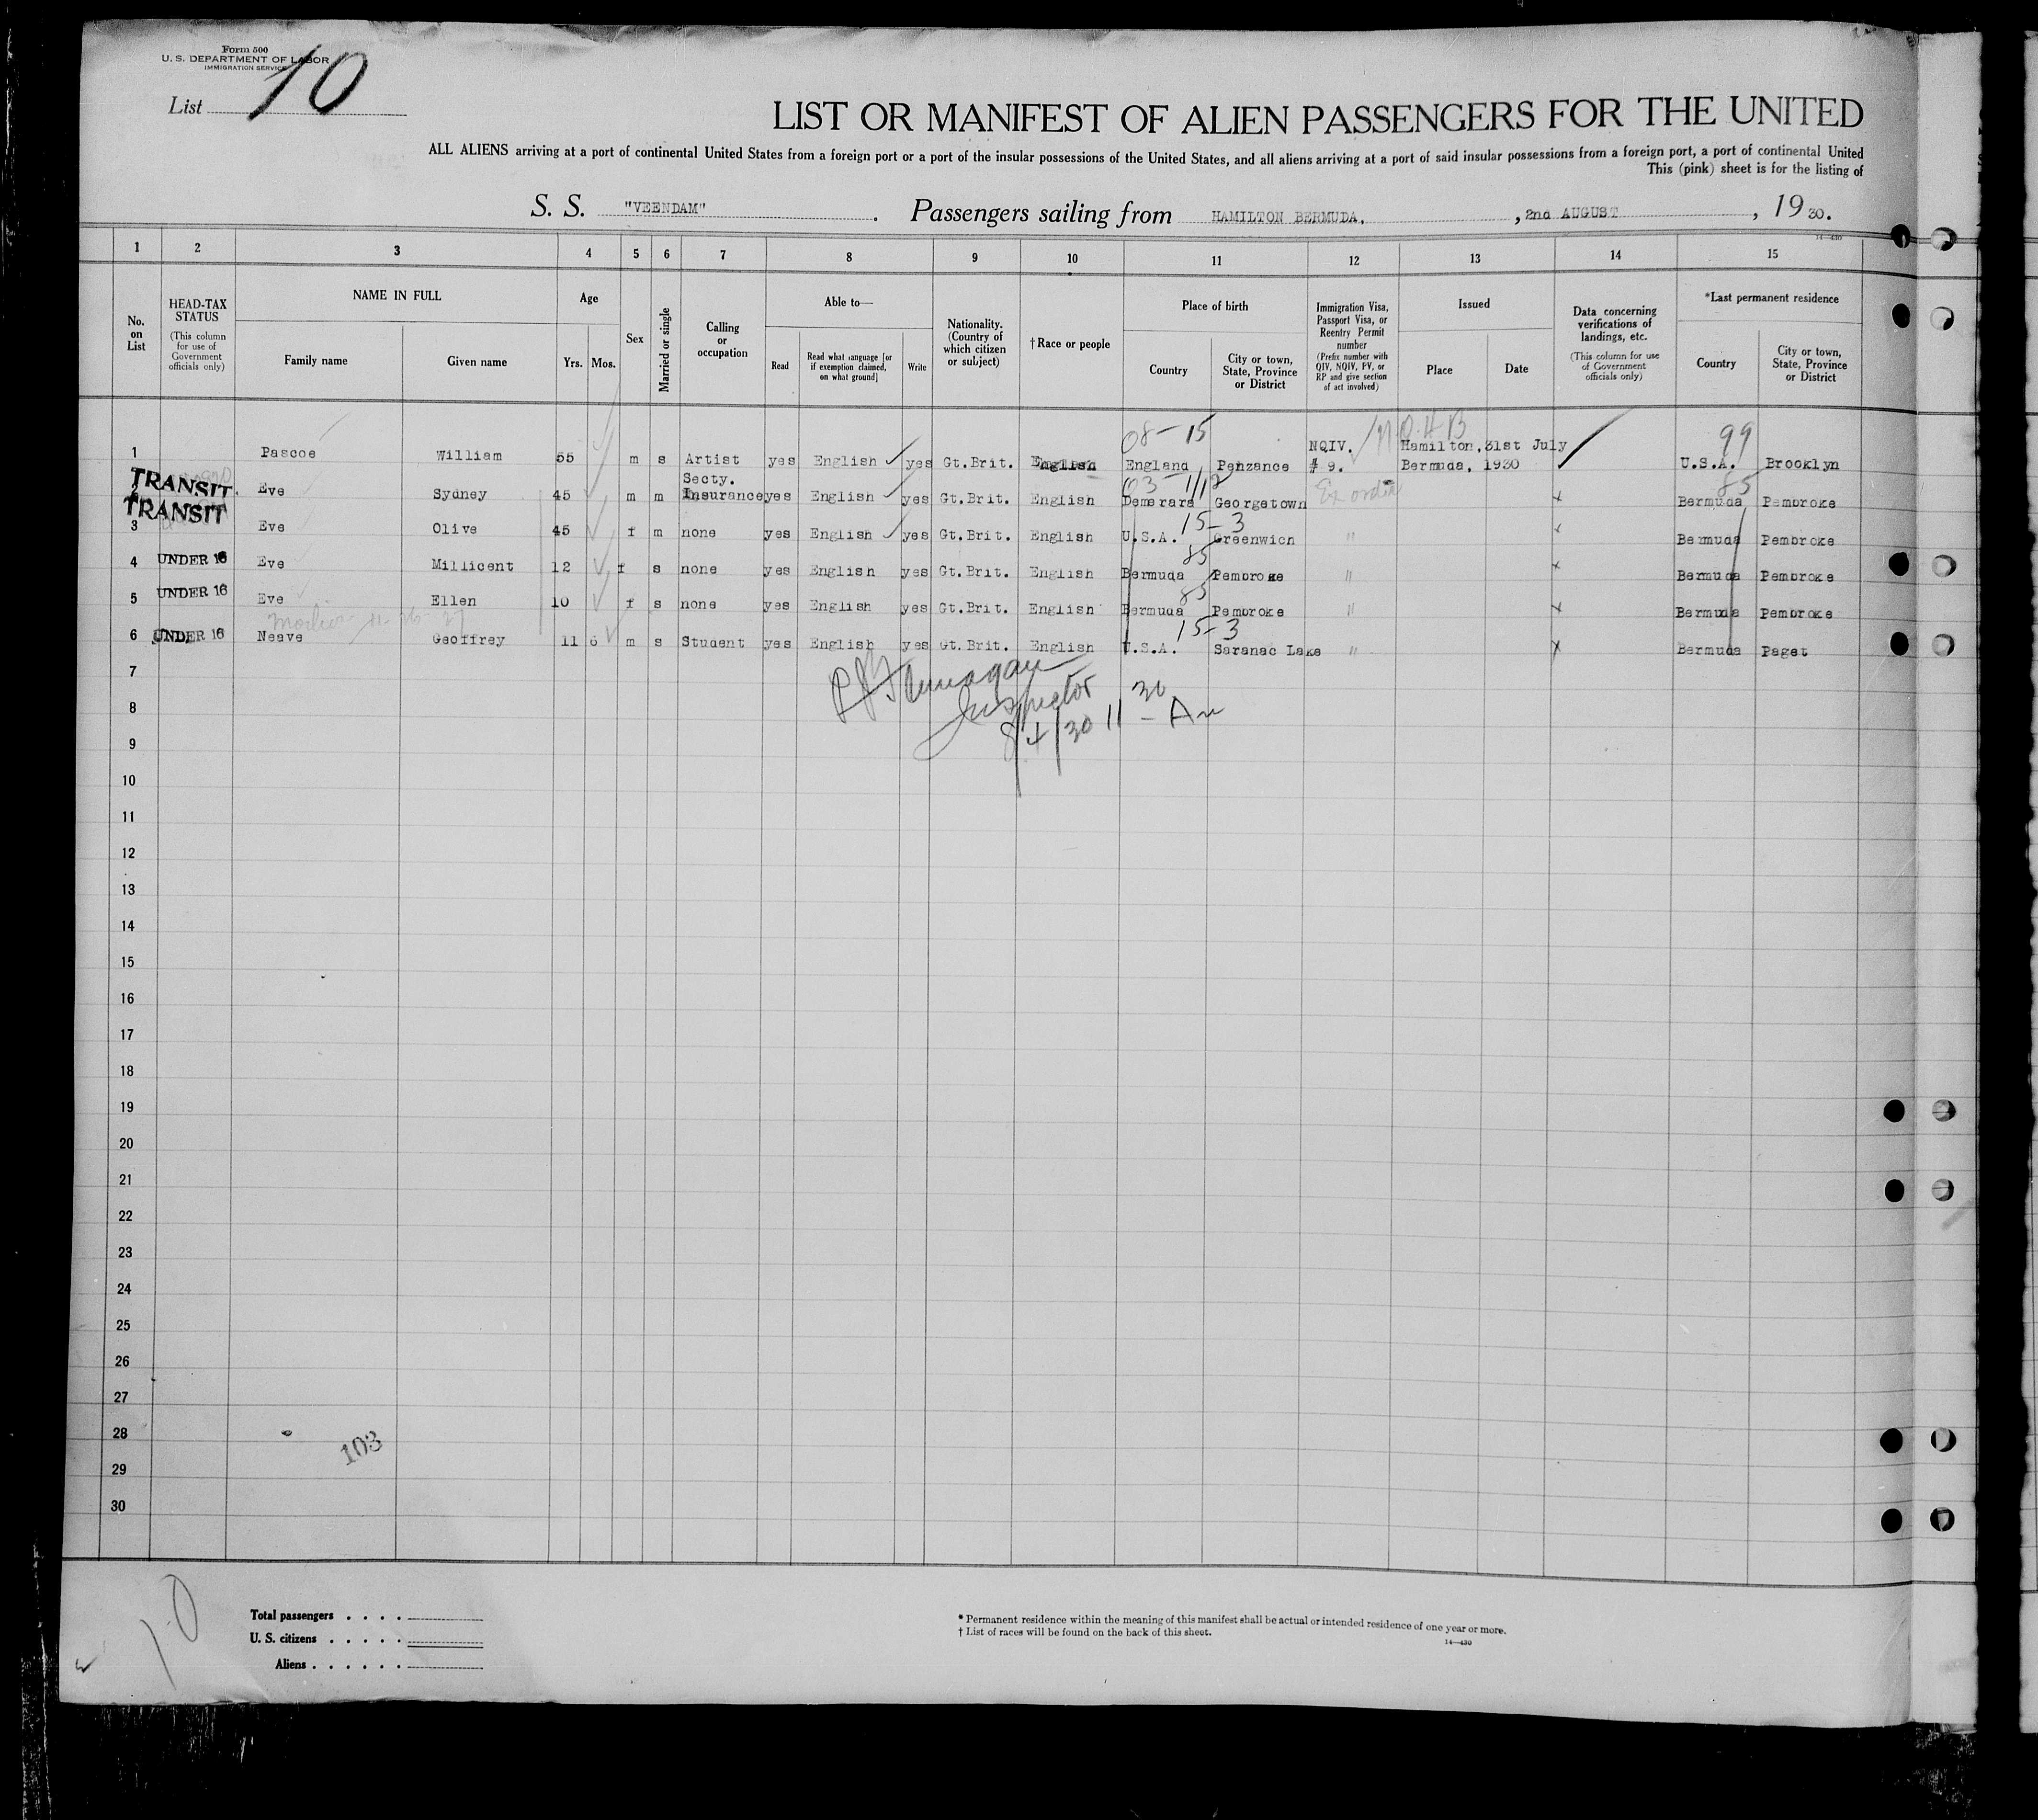 Form 500
U. S. DEPARTMENT OF LABOR
IMMIGRATION SERVICE
List 10
LIST OR MANIFEST OF ALIEN PASSENGERS FOR THE UNITED
ALL ALIENS arriving at a port of continental United States from a foreign port or a port of the insular possessions of the United States, and all aliens arriving at a port of said insular possessions from a foreign port, a port of continental United
This (pink) sheet is for the listing of
S. S. "VEENDAM". Passengers sailing from HAMILTON BERMUDA, , 2nd AUGUST , 19 30.
14—430
1 2 3 4 5 6 7 8 9 10 11 12 13 14 15
No. on List
HEAD-TAX STATUS (This column for use of Government officials only)
NAME IN FULL
Family name Given name
Age
Yrs. Mos.
Sex
Married or single
Calling or occupation
Able to—
Read Read what language [or if exemption claimed, on what ground] Write
Nationality. (Country of which citizen or subject)
† Race or people
Place of birth
Country City or town, State, Province or District
Immigration Visa, Passport Visa, or Reentry Permit number (Prefix number with QIV, NQIV, PV, or RP and give section of act involved)
Issued
Place Date
Data concerning verifications of landings, etc. (This column for use of Government officials only)
*Last permanent residence
Country City or town, State, Province or District
08-15 99
1 Pascoe William 55 m s Artist yes English yes Gt.Brit. English England Penzance NQIV. # 9. Hamilton, Bermuda, 31st July 1930 U.S.A. Brooklyn
85
TRANSIT Eve Sydney 45 m m Secty. Insurance yes English yes Gt.Brit. English Demerara Georgetown Bermuda Pembroke
15-3
TRANSIT 3 Eve Olive 45 f m none yes English yes Gt.Brit. English U.S.A. Greenwich " Bermuda Pembroke
85
4 UNDER 16 Eve Millicent 12 f s none yes English yes Gt.Brit. English Bermuda Pembroke " Bermuda Pembroke
85
5 UNDER 16 Eve Ellen 10 f s none yes English yes Gt.Brit. English Bermuda Pembroke " Bermuda Pembroke
15-3
6 UNDER 16 Neave Geoffrey 11 6 m s Student yes English yes Gt.Brit. English U.S.A. Saranac Lake " Bermuda Paget
7
Inspector
8
8/4/30 11 30 Am
9
10
11
12
13
14
15
16
17
18
19
20
21
22
23
24
25
26
27
28
103
29
30
10
Total passengers
U. S. citizens
Aliens
* Permanent residence within the meaning of this manifest shall be actual or intended residence of one year or more.
† List of races will be found on the back of this sheet.
14—430